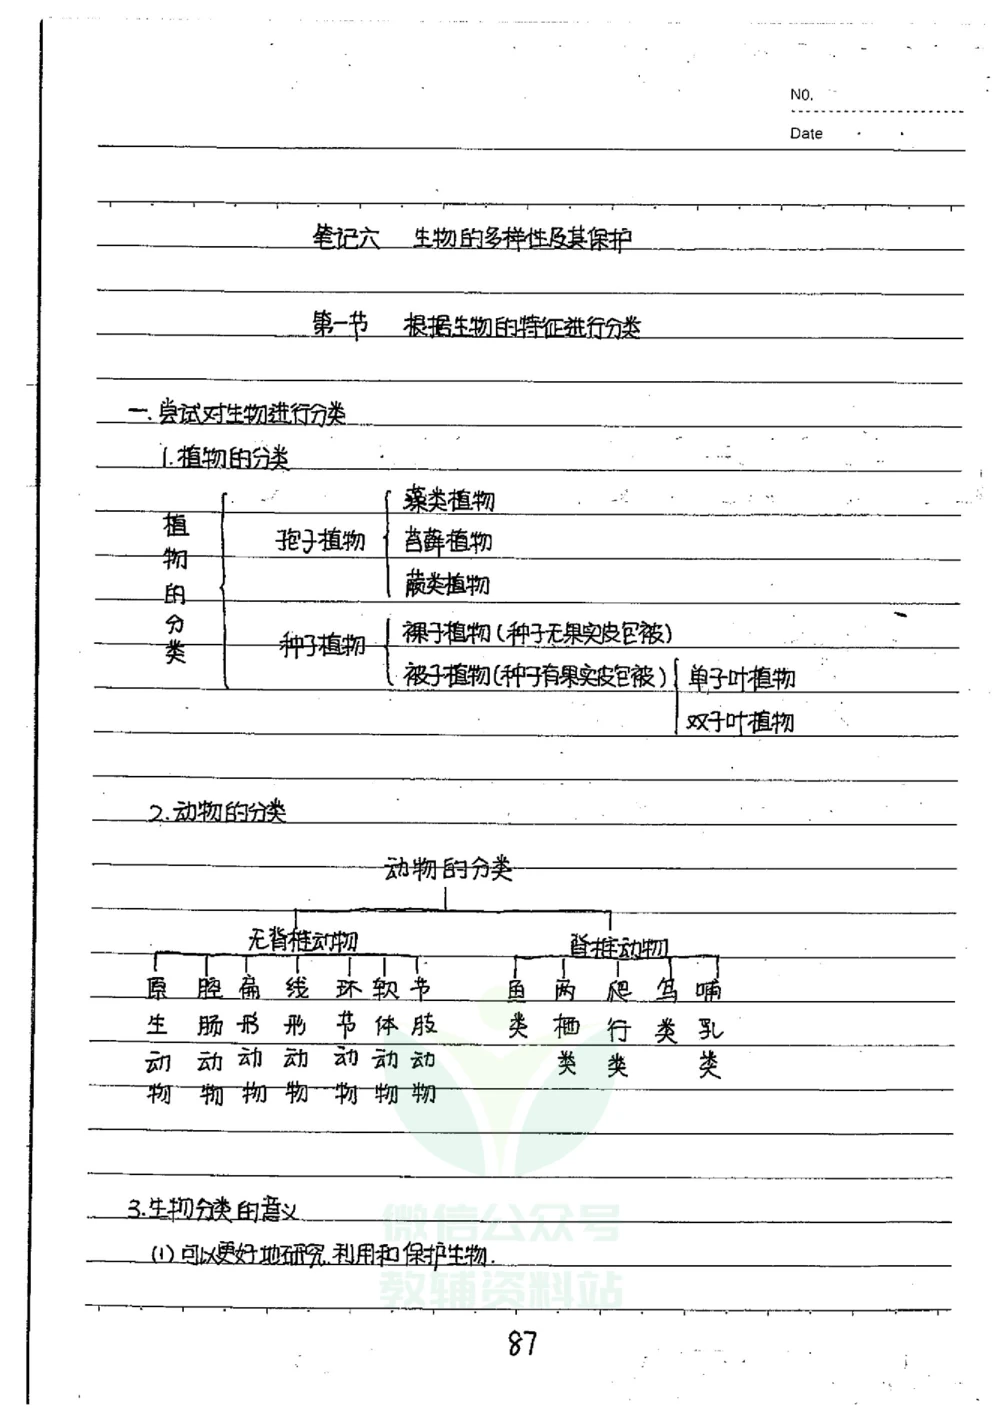 NO.
Date
笔记六 生物的多样性及其保护
第一节 根据生物的特征进行分类
一.尝试对生物进行分类
1.植物的分类
植物的分类
孢子植物
藻类植物
苔藓植物
蕨类植物
种子植物
裸子植物(种子无果实皮包被)
被子植物(种子有果实皮包被)
单子叶植物
双子叶植物
2.动物的分类
动物的分类
无脊椎动物
脊椎动物
原生动物
腔肠动物
扁形动物
线形动物
环节动物
软体动物
节肢动物
鱼类
两栖类
爬行类
鸟类
哺乳类
3.生物分类的意义
(1)可以更好地研究.利用和保护生物.
微信公众号
教辅资料站
87